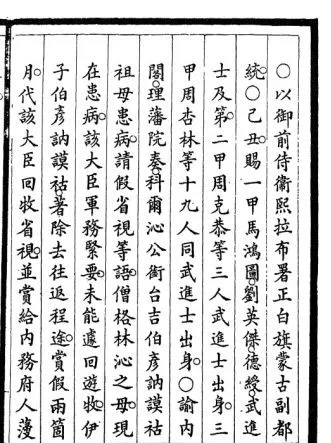 ○以御前侍衛熙拉布署正白旗蒙古副都
統。○己丑。賜一甲馬鴻圖。劉英傑德綬。武進
士及第。二甲周克恭等三人武進士出身。三
甲周杏林等十九人同武進士出身。○諭內
閣。理藩院奏。科爾沁公銜台吉伯彥訥謨祜
祖母患病。請假省視等語。僧格林沁之母。現
在患病。該大臣軍務緊要。未能遽回遊牧。伊
子伯彥訥謨祜。著除去往返程途。賞假兩箇
月。代該大臣回牧省視。並賞給內務府人漫